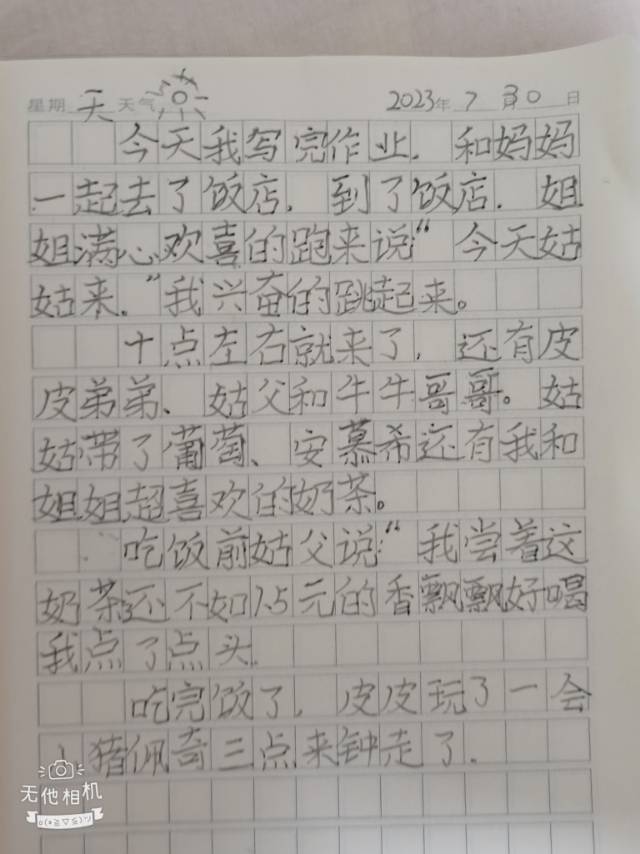 星期 天 天气 2023年 7 30 日
今天我写完作业，和妈妈
一起去了饭店，到了饭店．姐
姐满心欢喜的跑来说“今天姑
姑来．”我兴奋的跳起来。
十点左右就来了，还有皮
皮弟弟、姑父和牛牛哥哥。姑
姑带了葡萄、安慕希还有我和
姐姐超喜欢的奶茶。
吃饭前姑父说：“我尝着这
奶茶还不如1.5元的香飘飘好喝
我点了点头
吃完饭了，皮皮玩了一会
小猪佩奇三点来钟走了．
无他相机